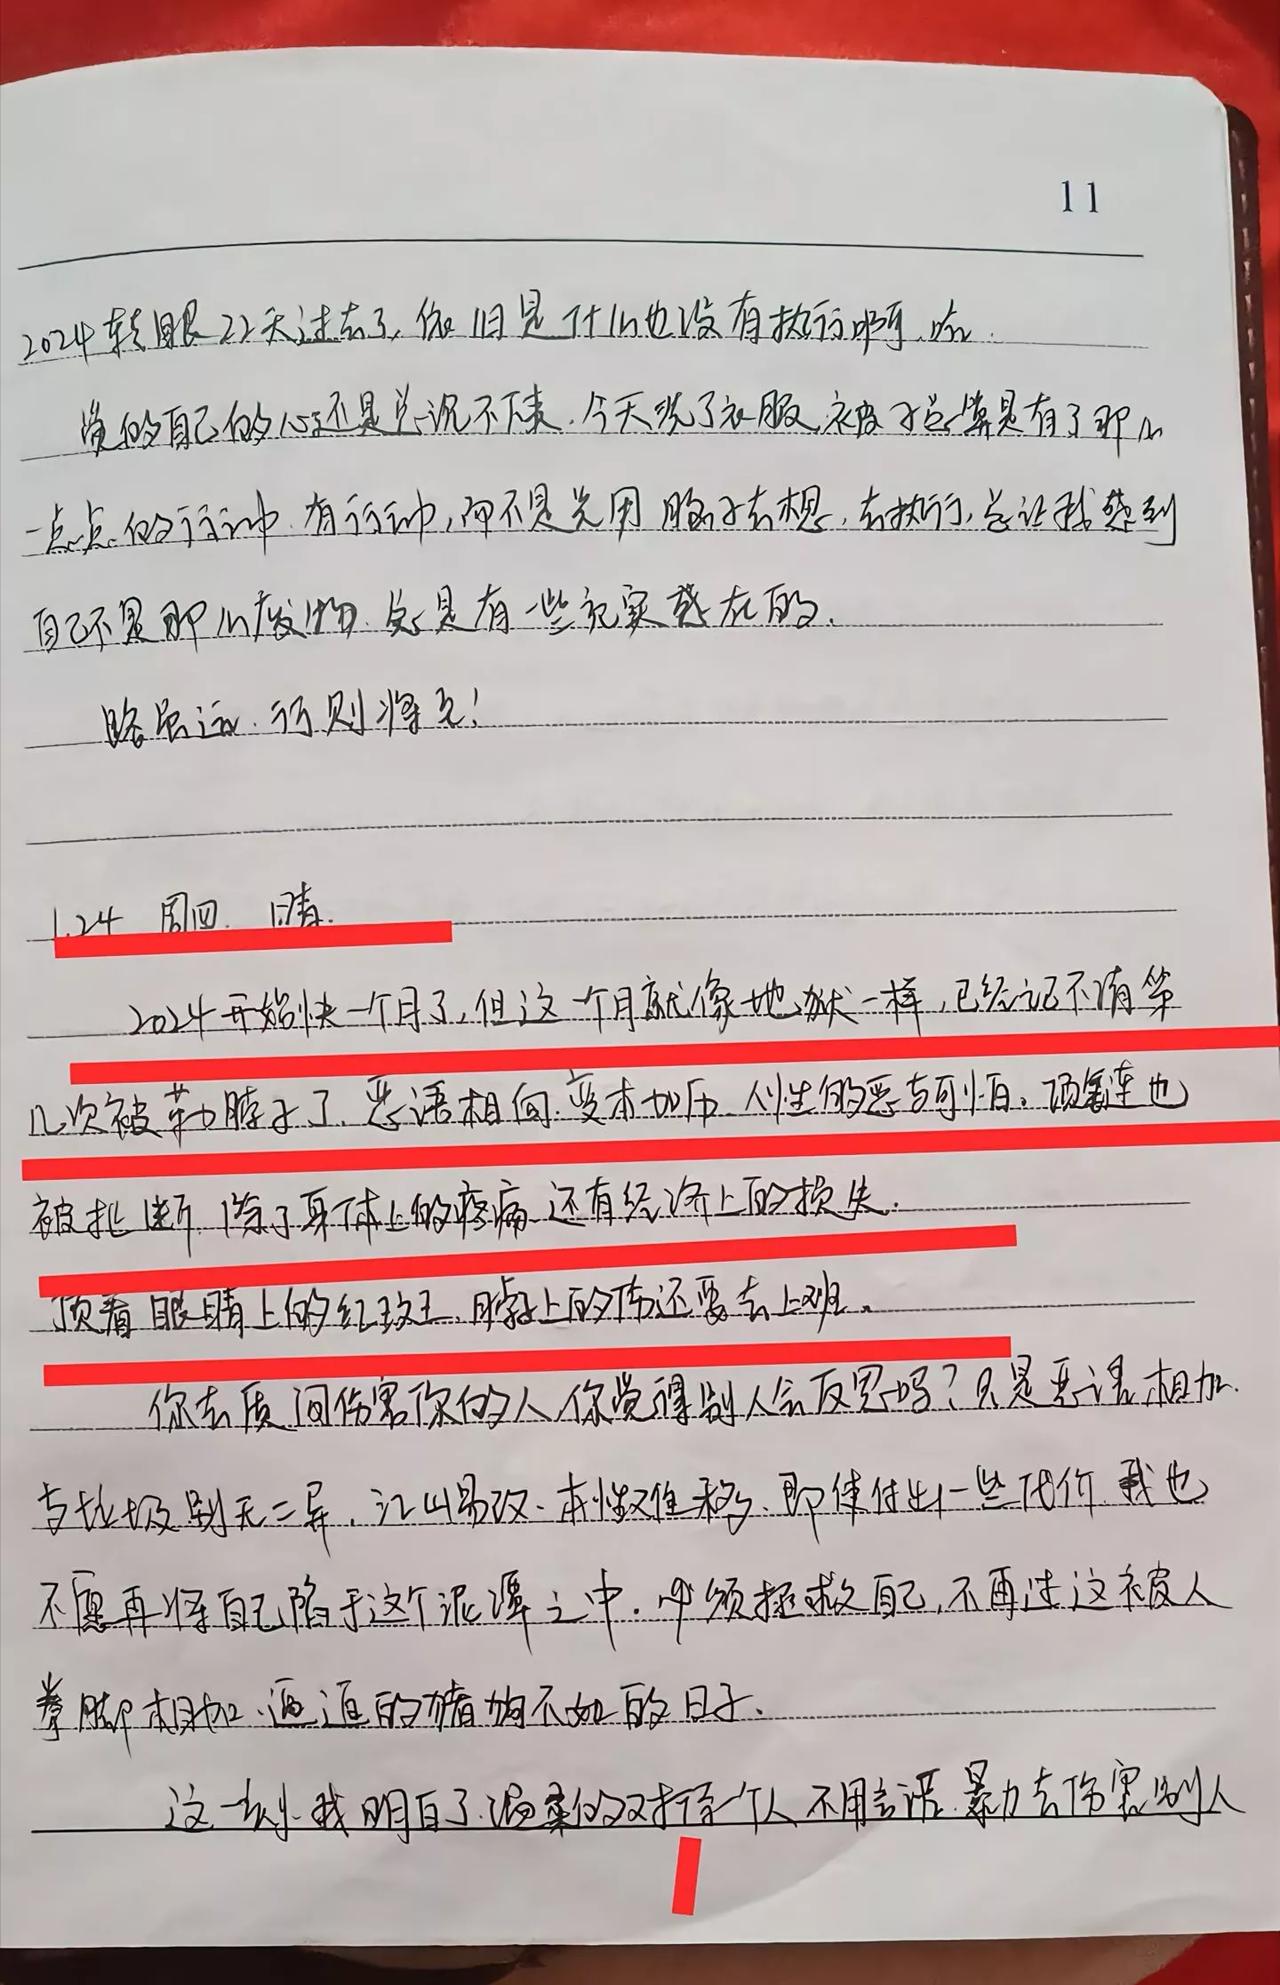 11
2024转眼22天过去了,依旧是什么也没有执行啊,哈.
觉的自己的心还是总沉不下来.今天洗了衣服,被子总算是有了那么
一点点的行动.有行动,而不是光用脑子去想,去执行,总让我感到
自己不是那么废物.总是有一些充实感在的.
路虽远.行则将至!
1.24 周四. 晴.
2024开始快一个月了,但这一个月就像地狱一样,已经记不清第
几次被勒脖子了.恶语相向.变本加厉.人性的恶与可怕。项链也
被扯断.除了身体上的疼痛.还有经济上的损失.
顶着眼睛上的红斑.脖子上的伤还要去上班.
你去质问伤害你的人,你觉得别人会反思吗?只是恶语相加.
与垃圾别无二异.江山易改.本性难移.即使付出一些代价.我也
不愿再将自己陷于这个泥潭之中.必须拯救自己,不再过这被人
拳脚相加.逼迫的猪狗不如的日子.
这一刻.我明白了.温柔的对待一个人不用言语.暴力去伤害别人